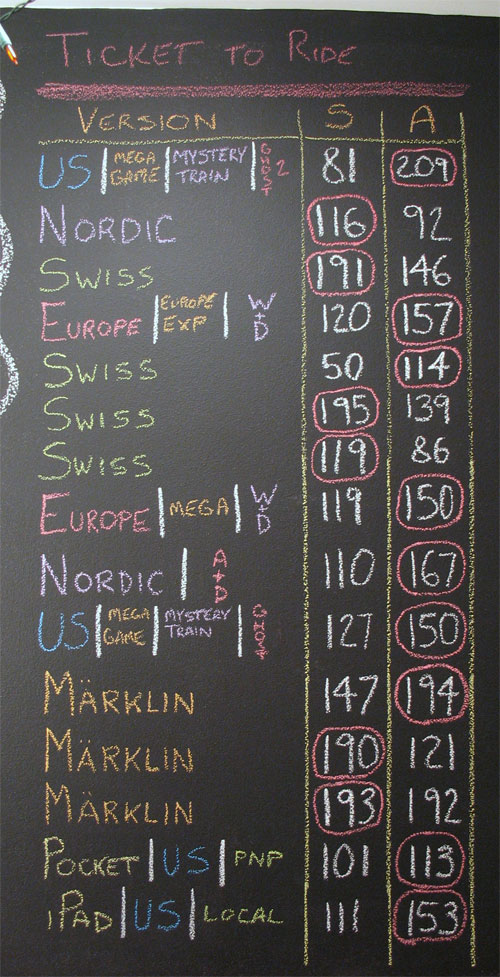 TICKET TO RIDE
VERSION S A
US | MEGA GAME | MYSTERY TRAIN | GHOST 2 81 209
NORDIC 116 92
SWISS 191 146
EUROPE | EUROPE EXP | W+D 120 157
SWISS 50 114
SWISS 195 139
SWISS 119 86
EUROPE | MEGA | W+D 119 150
NORDIC | A+D 110 167
US | MEGA GAME | MYSTERY TRAIN | GHOST 127 150
MÄRKLIN 147 194
MÄRKLIN 190 121
MÄRKLIN 193 192
POCKET | US | PNP 101 113
iPAD | US | LOCAL 111 153